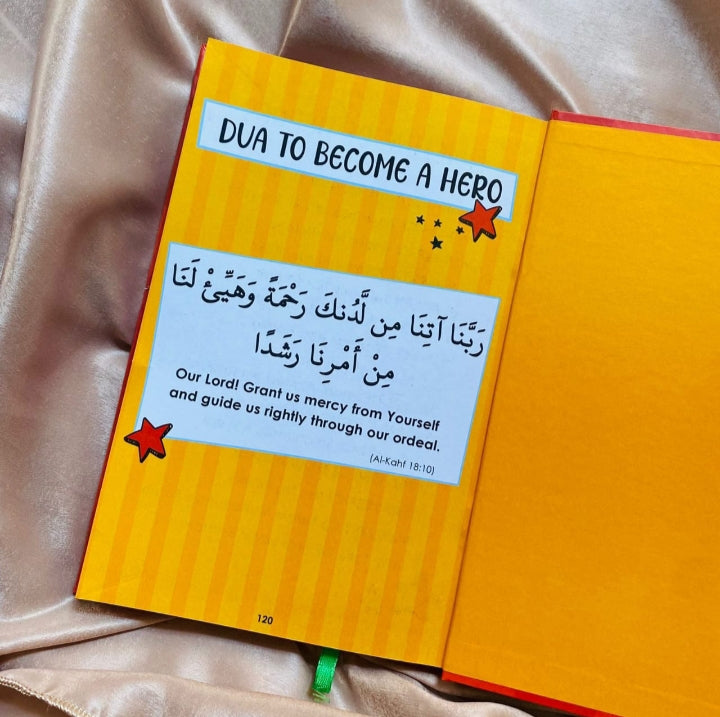 DUA TO BECOME A HERO
رَبَّنَا آتِنَا مِن لَّدُنكَ رَحْمَةً وَهَيِّئْ لَنَا
مِنْ أَمْرِنَا رَشَدًا
Our Lord! Grant us mercy from Yourself
and guide us rightly through our ordeal.
(Al-Kahf 18:10)
120